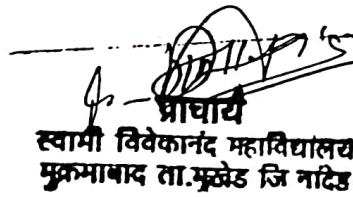 प्राचार्य
स्वामी विवेकानंद महाविद्यालय
मुक्रमाबाद ता.मुखेड जि नांदेड